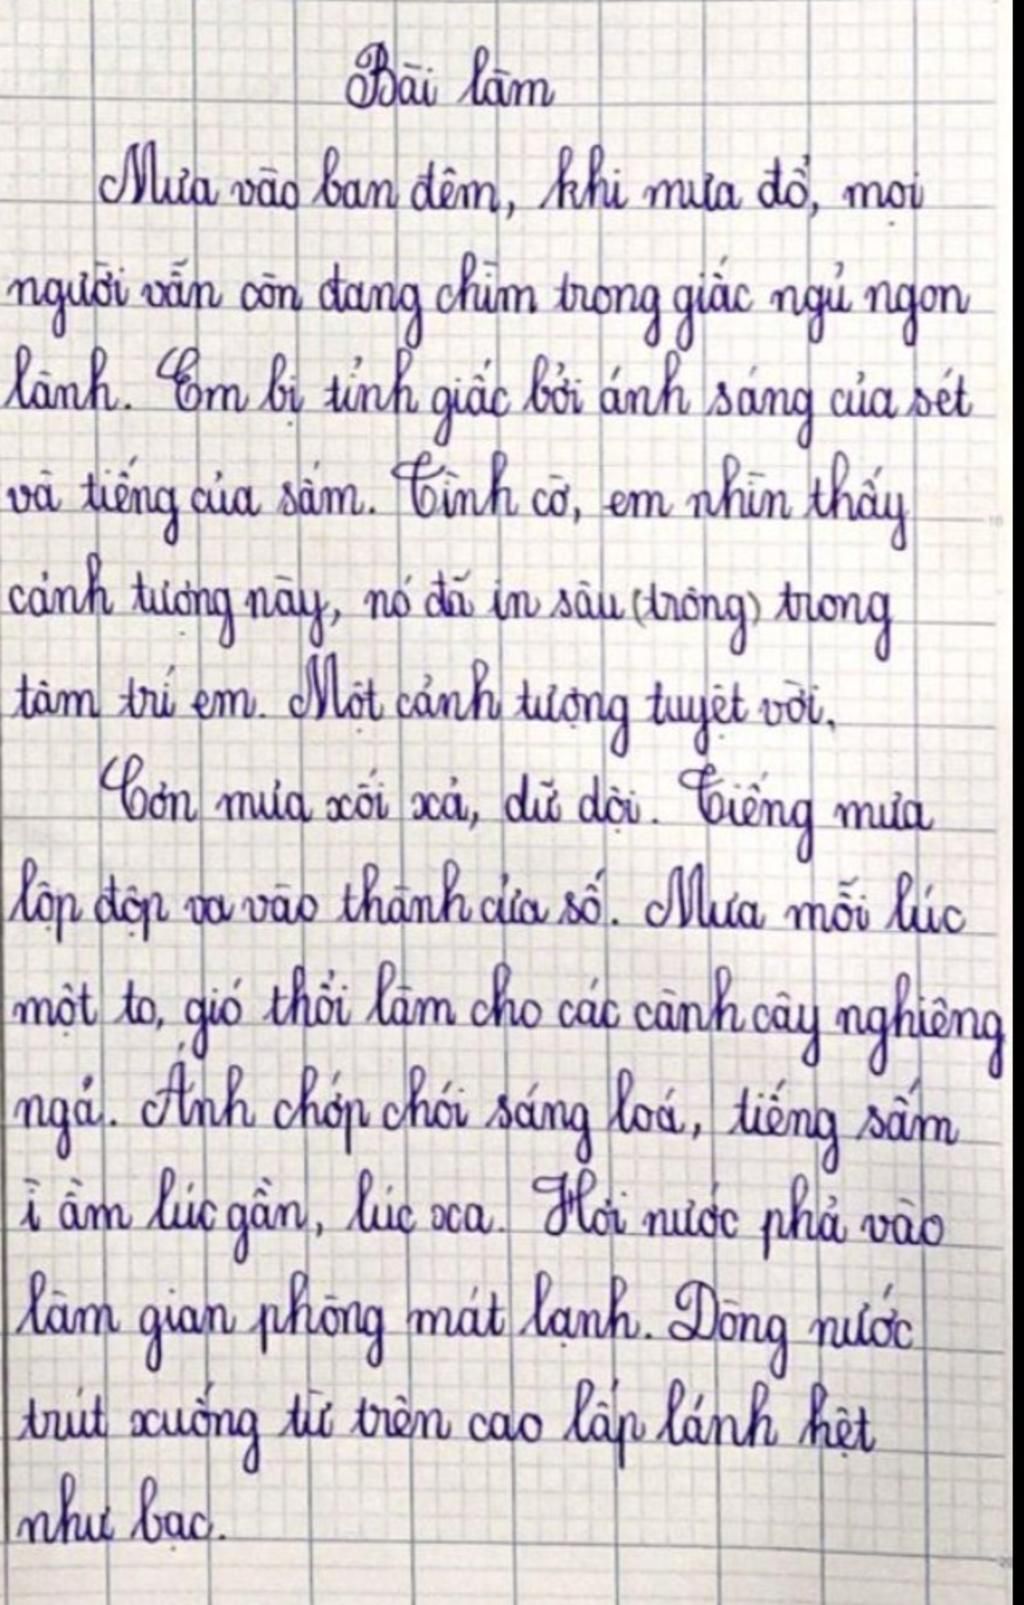 Bài làm
Mưa vào ban đêm, khi mưa đổ, mọi
người vẫn còn đang chìm trong giấc ngủ ngon
lành. Em bị tỉnh giấc bởi ánh sáng của sét
và tiếng của sấm. Tình cờ, em nhìn thấy
cảnh tượng này, nó đã in sâu (trông) trong
tâm trí em. Một cảnh tượng tuyệt vời.
Cơn mưa xối xả, dữ dội. Tiếng mưa
lộp độp va vào thành cửa sổ. Mưa mỗi lúc
một to, gió thổi làm cho các cành cây nghiêng
ngả. Ánh chớp chói sáng loá, tiếng sấm
ì ầm lúc gần, lúc xa. Hơi nước phả vào
làm gian phòng mát lạnh. Dòng nước
trút xuống từ trên cao lấp lánh hệt
như bạc.